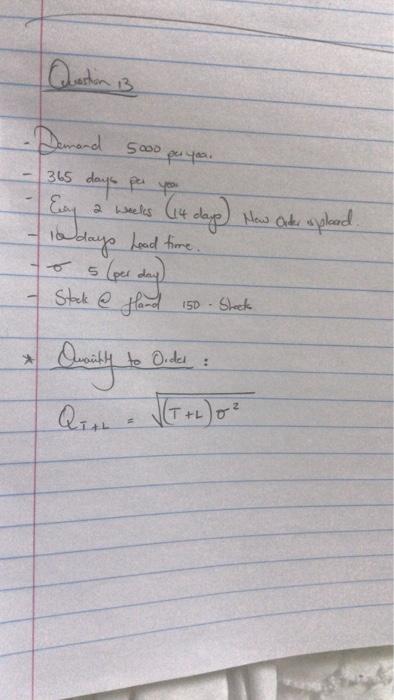 Question 13
- Demand 5000 per year.
- 365 days per year
- Every 2 weeks (14 days) New Order is placed.
- 10 days Lead time.
- σ 5 (per day)
- Stock @ Hand 150 - Sheets
* Quantity to Order :
Q T+L = √(T+L)σ²